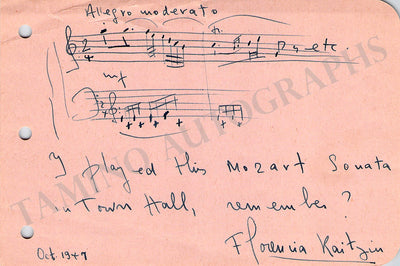 Allegro moderato
tr.
2/4
etc
mf
2/4
I played this Mozart Sonata
in Town Hall, remember?
Florencia Raitzin
Oct 1947
TAMINO AUTOGRAPHS